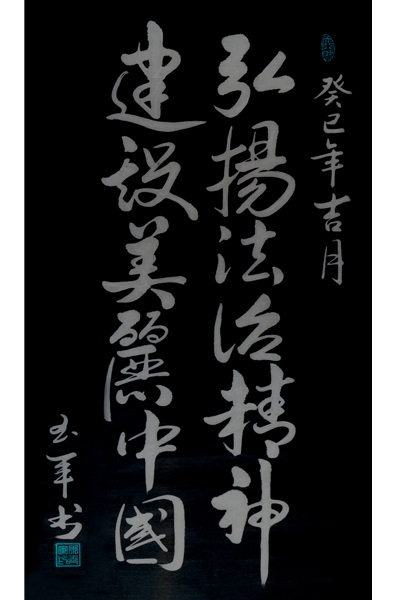 癸巳年吉月
弘揚法治精神
建設美麗中國
玉军书